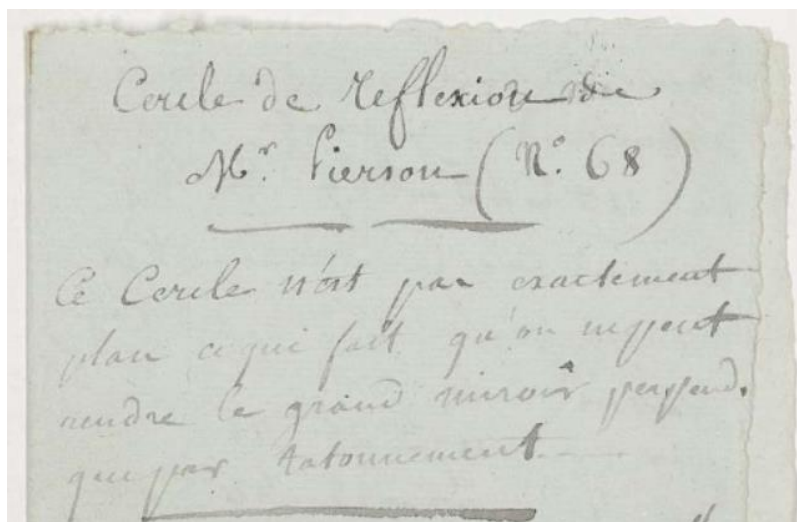 Cercle de reflexion de
Mr. Pierson (No. 68)
Ce Cercle n'est pas exactement
plan ce qui fait qu'on ne peut
rendre le grand miroir perpend.
que par tatonnement